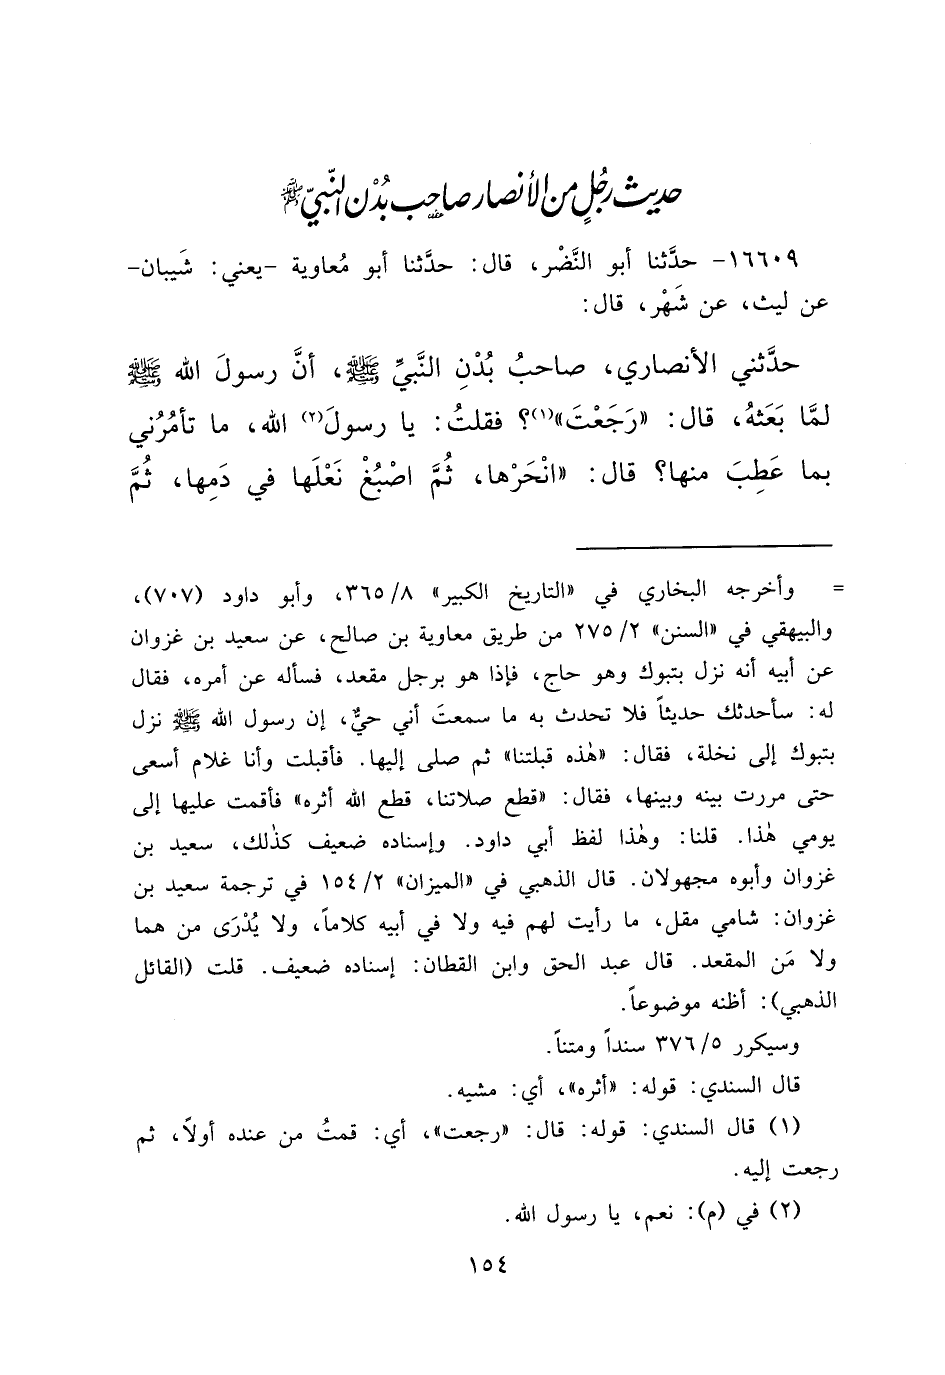 حديث رجُلٍ من الأنصار صاحب بُدْن النّبيّ ﷺ
١٦٦٠٩- حدَّثنا أبو النَّضْر، قال: حدَّثنا أبو مُعاوية -يعني: شَيبان-
عن ليث، عن شَهْر، قال:
حدَّثني الأنصاري، صاحبُ بُدْنِ النَّبيِّ ﷺ، أنَّ رسولَ الله ﷺ
لمَّا بَعَثهُ، قال: «رَجَعْتَ»(١)؟ فقلتُ: يا رسولَ(٢) الله، ما تأمُرُني
بما عَطِبَ منها؟ قال: «انْحَرْها، ثُمَّ اصْبُغْ نَعْلَها في دَمِها، ثُمَّ
= وأخرجه البخاري في «التاريخ الكبير» ٣٦٥/٨، وأبو داود (٧٠٧)،
والبيهقي في «السنن» ٢٧٥/٢ من طريق معاوية بن صالح، عن سعيد بن غزوان
عن أبيه أنه نزل بتبوك وهو حاج، فإذا هو برجل مقعد، فسأله عن أمره، فقال
له: سأحدثك حديثاً فلا تحدث به ما سمعتَ أني حيٌّ، إن رسول الله ﷺ نزل
بتبوك إلى نخلة، فقال: «هٰذه قبلتنا» ثم صلى إليها. فأقبلت وأنا غلام أسعى
حتى مررت بينه وبينها، فقال: «قطع صلاتنا، قطع الله أثره» فأقمت عليها إلى
يومي هٰذا. قلنا: وهٰذا لفظ أبي داود. وإسناده ضعيف كذٰلك، سعيد بن
غزوان وأبوه مجهولان. قال الذهبي في «الميزان» ١٥٤/٢ في ترجمة سعيد بن
غزوان: شامي مقل، ما رأيت لهم فيه ولا في أبيه كلاماً، ولا يُدْرَى من هما
ولا مَن المقعد. قال عبد الحق وابن القطان: إسناده ضعيف. قلت (القائل
الذهبي): أظنه موضوعاً.
وسيكرر ٣٧٦/٥ سنداً ومتناً.
قال السندي: قوله: «أثره»، أي: مشيه.
(١) قال السندي: قوله: قال: «رجعت»، أي: قمتُ من عنده أولاً، ثم
رجعت إليه.
(٢) في (م): نعم، يا رسول الله.
١٥٤